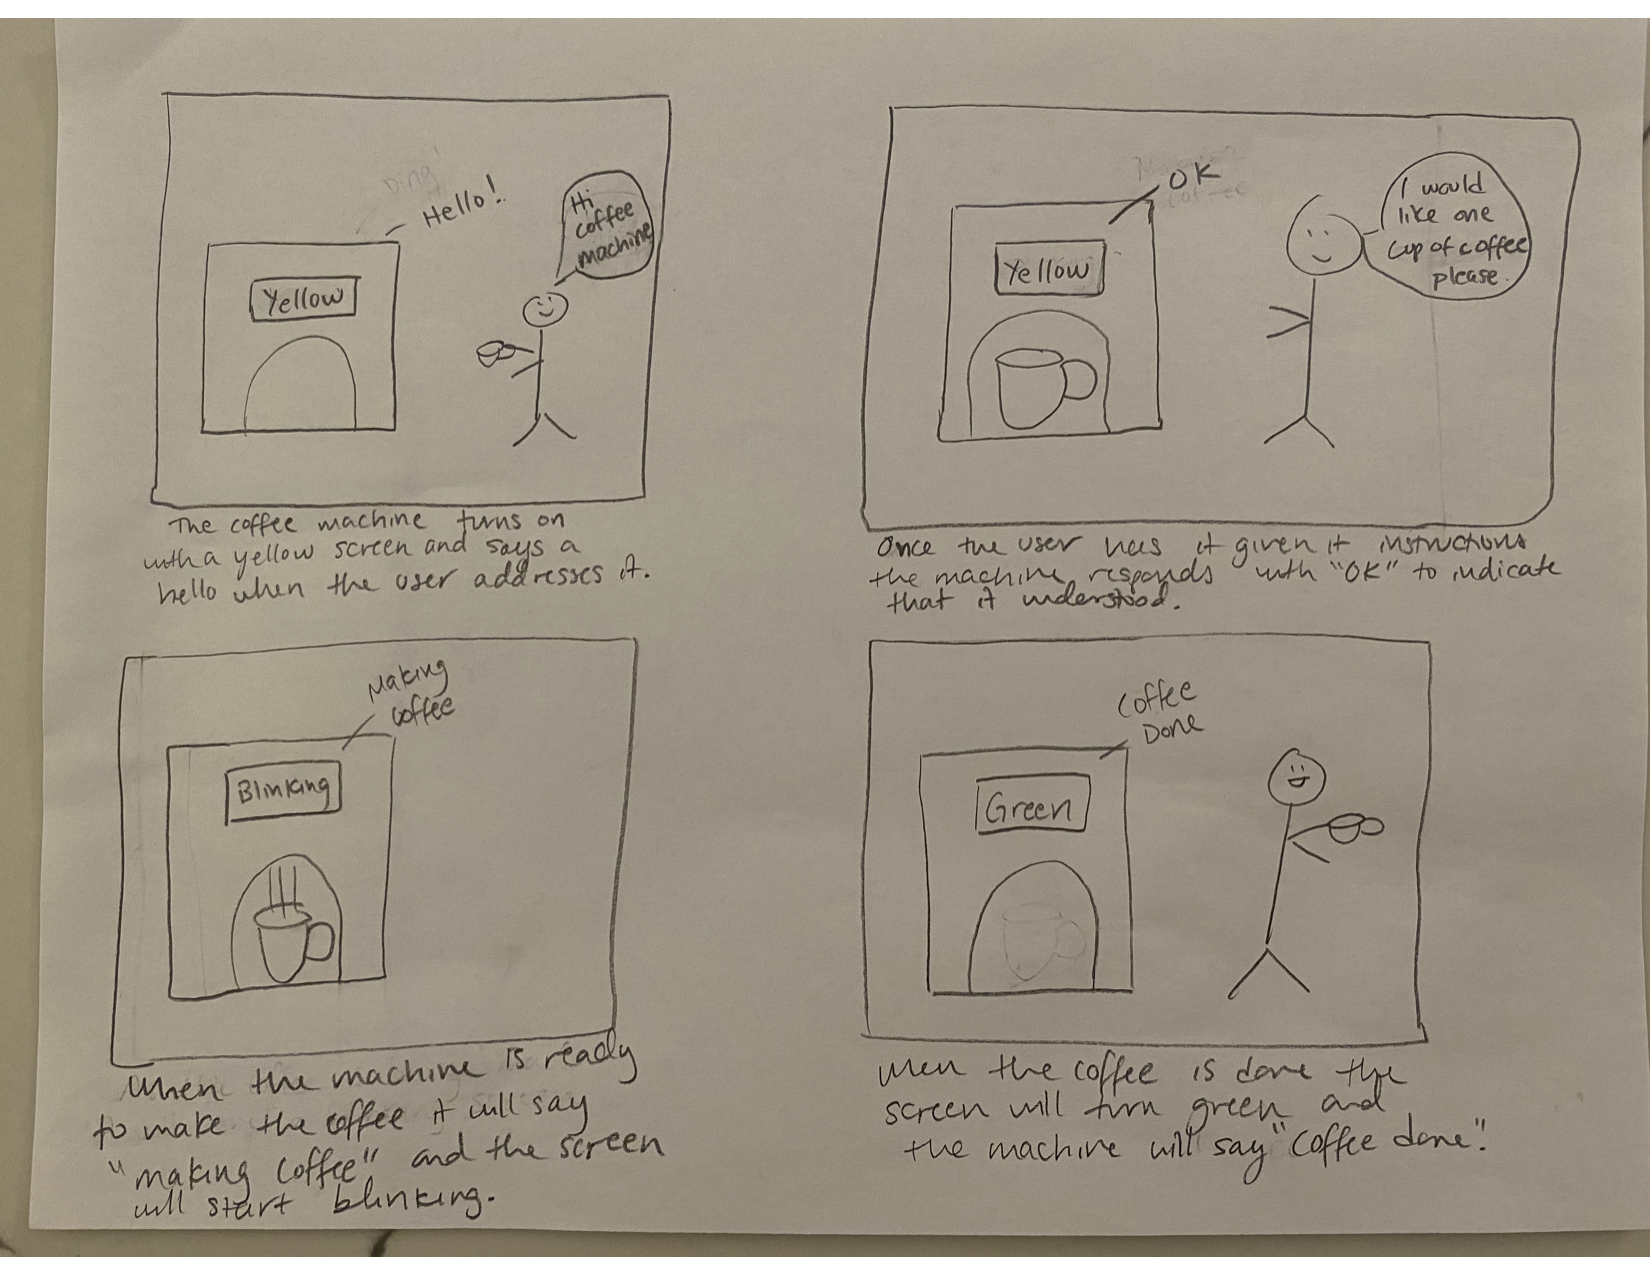 Hello!
Hi
coffee
machine
Yellow
The coffee machine turns on
with a yellow screen and says a
hello when the user addresses it.
OK
I would
like one
cup of coffee
please.
Yellow
Once the user has it given it instructions
the machine responds with "OK" to indicate
that it understood.
Making
Coffee
Blinking
When the machine is ready
to make the coffee it will say
"making coffee" and the screen
will start blinking.
Coffee
Done
Green
When the coffee is done the
screen will turn green and
the machine will say "Coffee done".